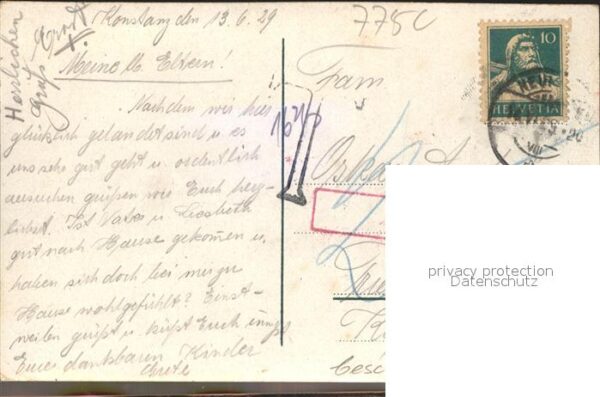 Konstanz den 13.6.29
775C
Herzlichen
Gruß Ernst
Meine lb Eltern!
Nachdem wir hier
glücklich gelandet sind u es
uns sehr gut geht u ordentlich
ausruhen grüßen wir Euch herz-
lichst. Ist Vater u Liesbeth
gut nach Hause gekommen u.
haben sich doch bei mir zu
Hause wohlgefühlt? Einst-
weilen grüßt u küßt Euch innigst
Eure dankbaren Kinder
Grete
Fam
Oskar
10
HELVETIA
T
privacy protection
Datenschutz